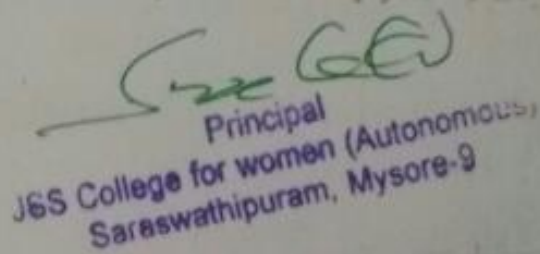 Principal
JSS College for women (Autonomous)
Saraswathipuram, Mysore-9